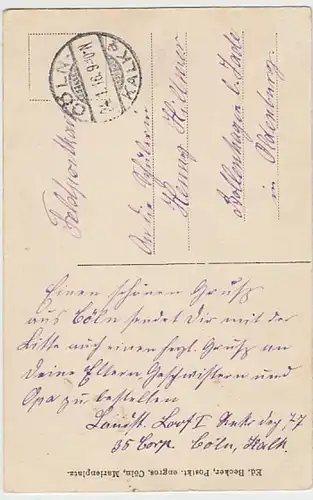 CÖLN KALK
24.1.16. 9-10N
Feldpostkarte
An die Schülerin
Henny Hillmer
Bollenhagen b. Jade
in Oldenburg.
Einen schönen Gruß
aus Cöln sendet Dir mit der
Bitte auch einen herzl. Gruß an
Deine Eltern Geschwistern und
Opa zu bestellen
Landst. I Rekr dep. 77
35 Corp. Cöln, Kalk.
Ed. Becker, Postkt. engros, Cöln, Marienplatz.